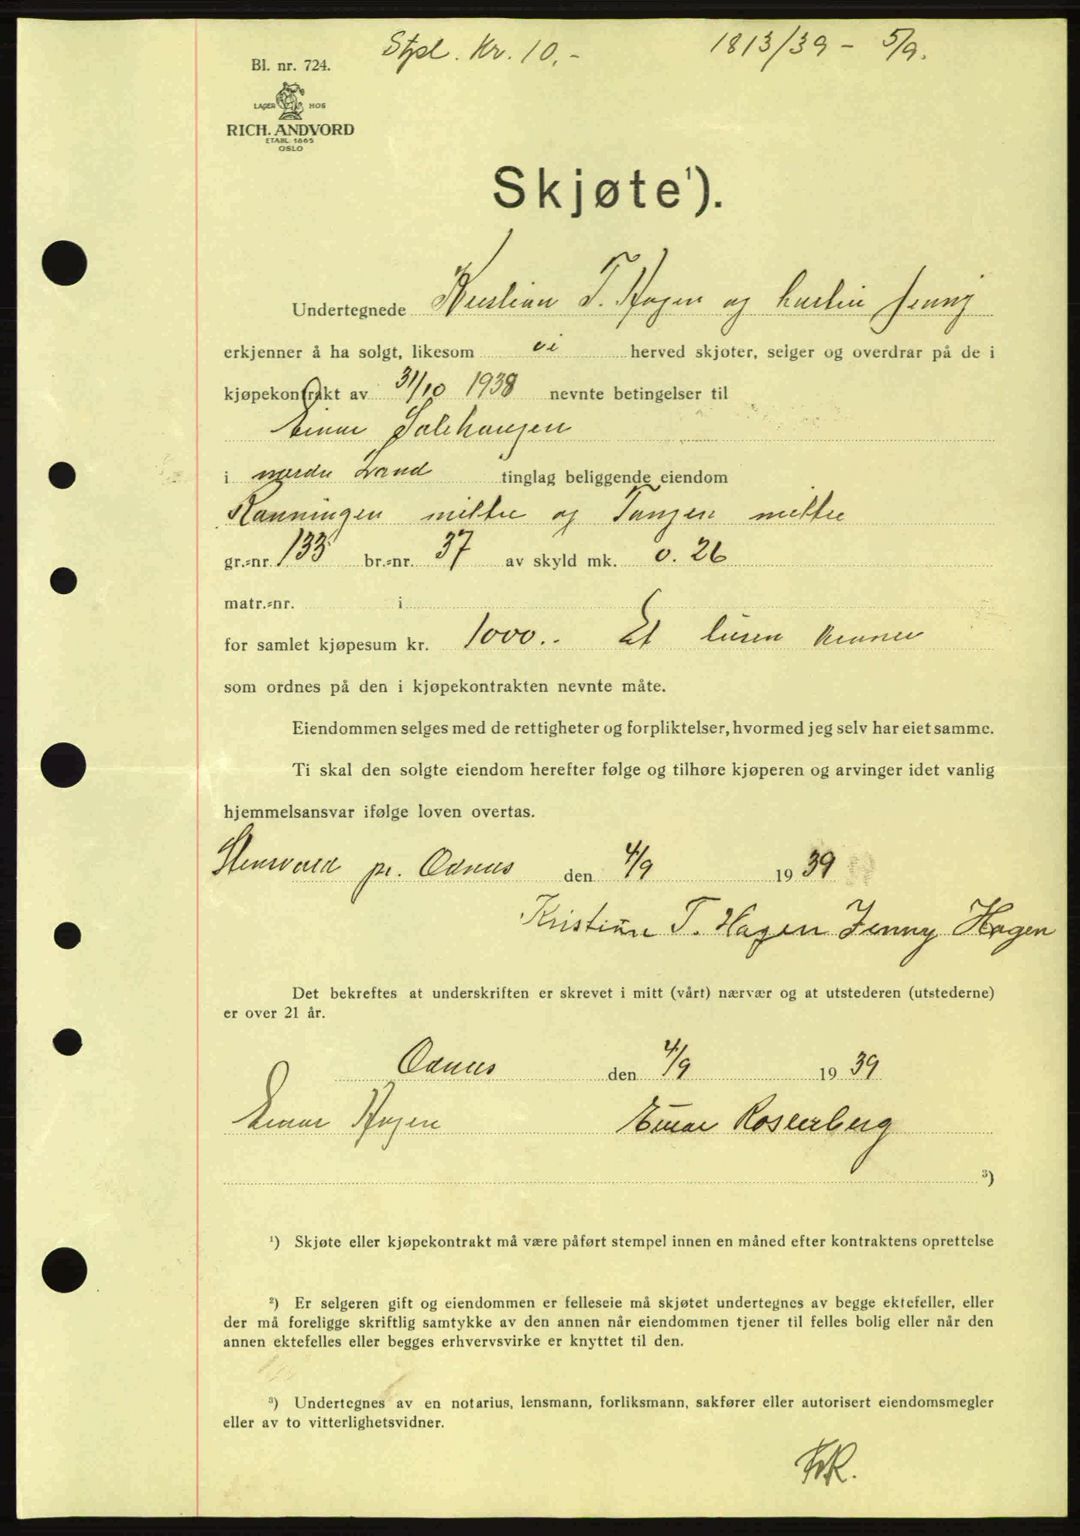 Stpl. Kr. 10,- 1813/39 - 5/9.
Bl. nr. 724.
LAGER HOS
RICH. ANDVORD
ETABL. 1865
OSLO
Skjøte¹).
Undertegnede Kristian T. Hagen og hustru Jenny
erkjenner å ha solgt, likesom vi herved skjøter, selger og overdrar på de i
kjøpekontrakt av 31/10 1938 nevnte betingelser til
Einar Solehaugen
i nordre Land tinglag beliggende eiendom
Rønningen mittre og Tangen mittre
gr.-nr. 133 br.-nr. 37 av skyld mk. 0.26
matr.-nr. i
for samlet kjøpesum kr. 1000.- Et tusen kroner
som ordnes på den i kjøpekontrakten nevnte måte.
Eiendommen selges med de rettigheter og forpliktelser, hvormed jeg selv har eiet samme.
Ti skal den solgte eiendom herefter følge og tilhøre kjøperen og arvinger idet vanlig
hjemmelsansvar ifølge loven overtas.
pr. Odnes den 4/9 1939
Kristian T. Hagen Jenny Hagen
Det bekreftes at underskriften er skrevet i mitt (vårt) nærvær og at utstederen (utstederne)
er over 21 år.
Odnes den 4/9 1939
Einar Hagen Einar Roseberg
³)
¹) Skjøte eller kjøpekontrakt må være påført stempel innen en måned efter kontraktens oprettelse
²) Er selgeren gift og eiendommen er felleseie må skjøtet undertegnes av begge ektefeller, eller
der må foreligge skriftlig samtykke av den annen når eiendommen tjener til felles bolig eller når den
annen ektefelles eller begges erhvervsvirke er knyttet til den.
³) Undertegnes av en notarius, lensmann, forliksmann, sakfører eller autorisert eiendomsmegler
eller av to vitterlighetsvidner.